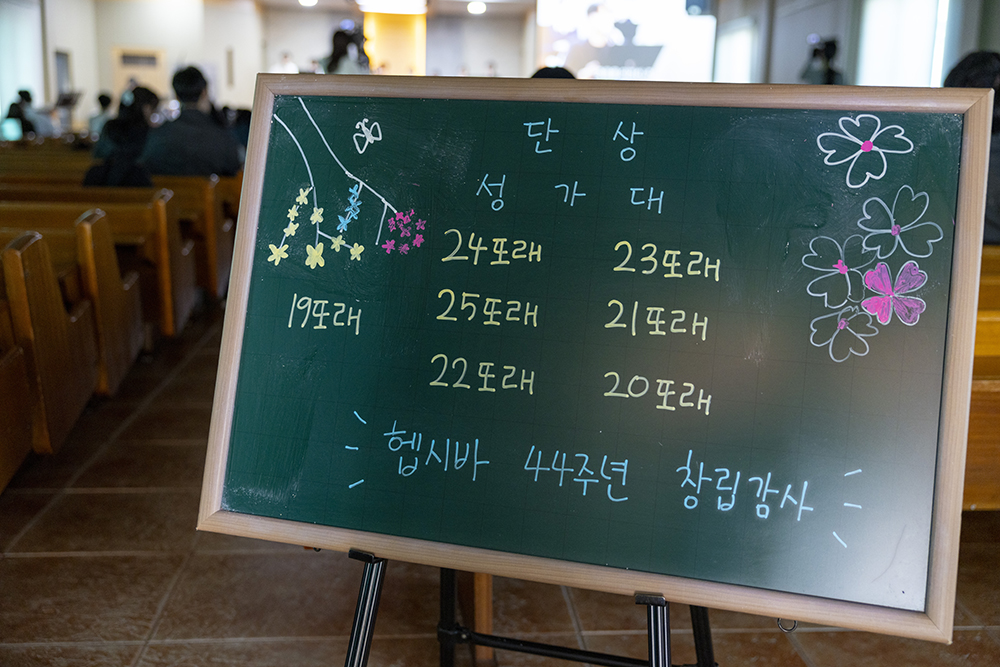 단 상
성 가 대
24또래 23또래
19또래 25또래 21또래
22또래 20또래
헵시바 44주년 창립감사